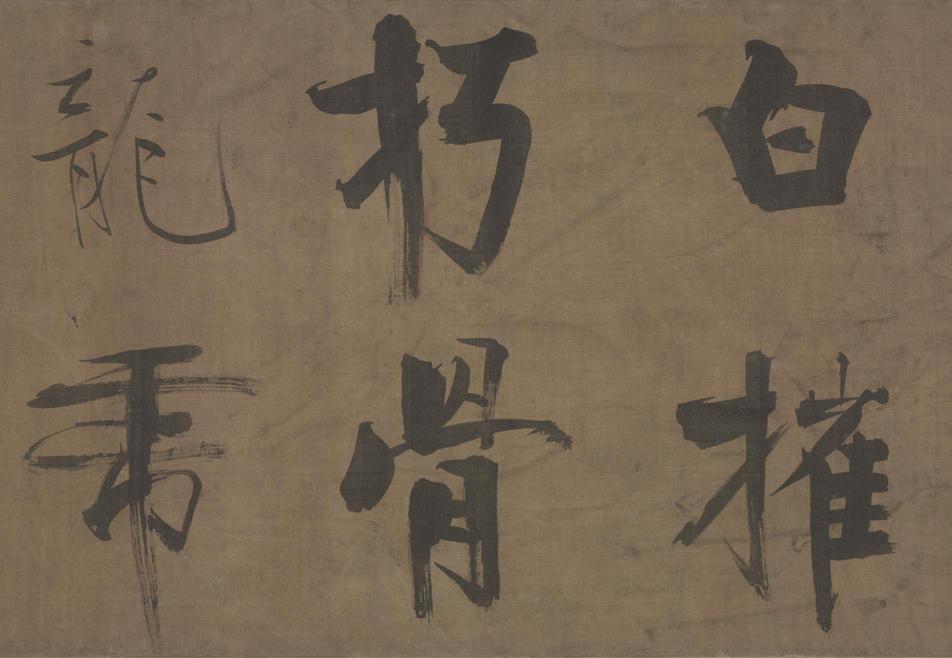 白摧
朽骨
龍虎